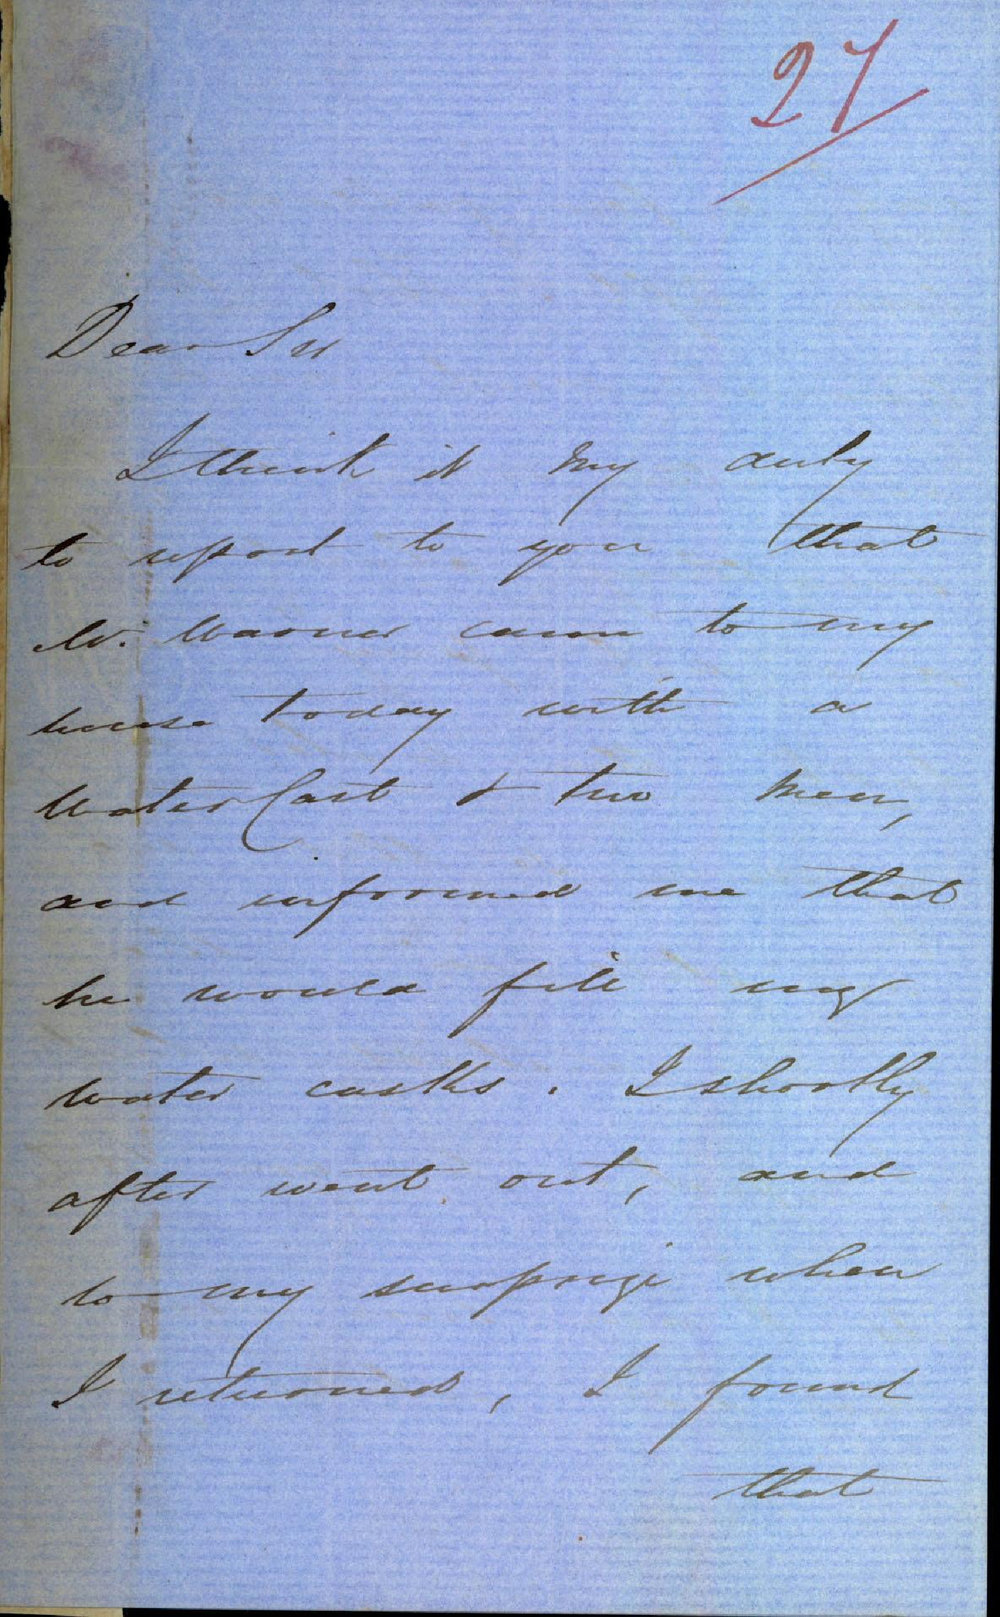 27
Dear Sir
I think it my duty
to report to you that
Mr. Warner came to my
house today with a
Water Cart & two men,
and informed me that
he would fill my
water casks. I shortly
after went out, and
to my surprize when
I returned, I found
that